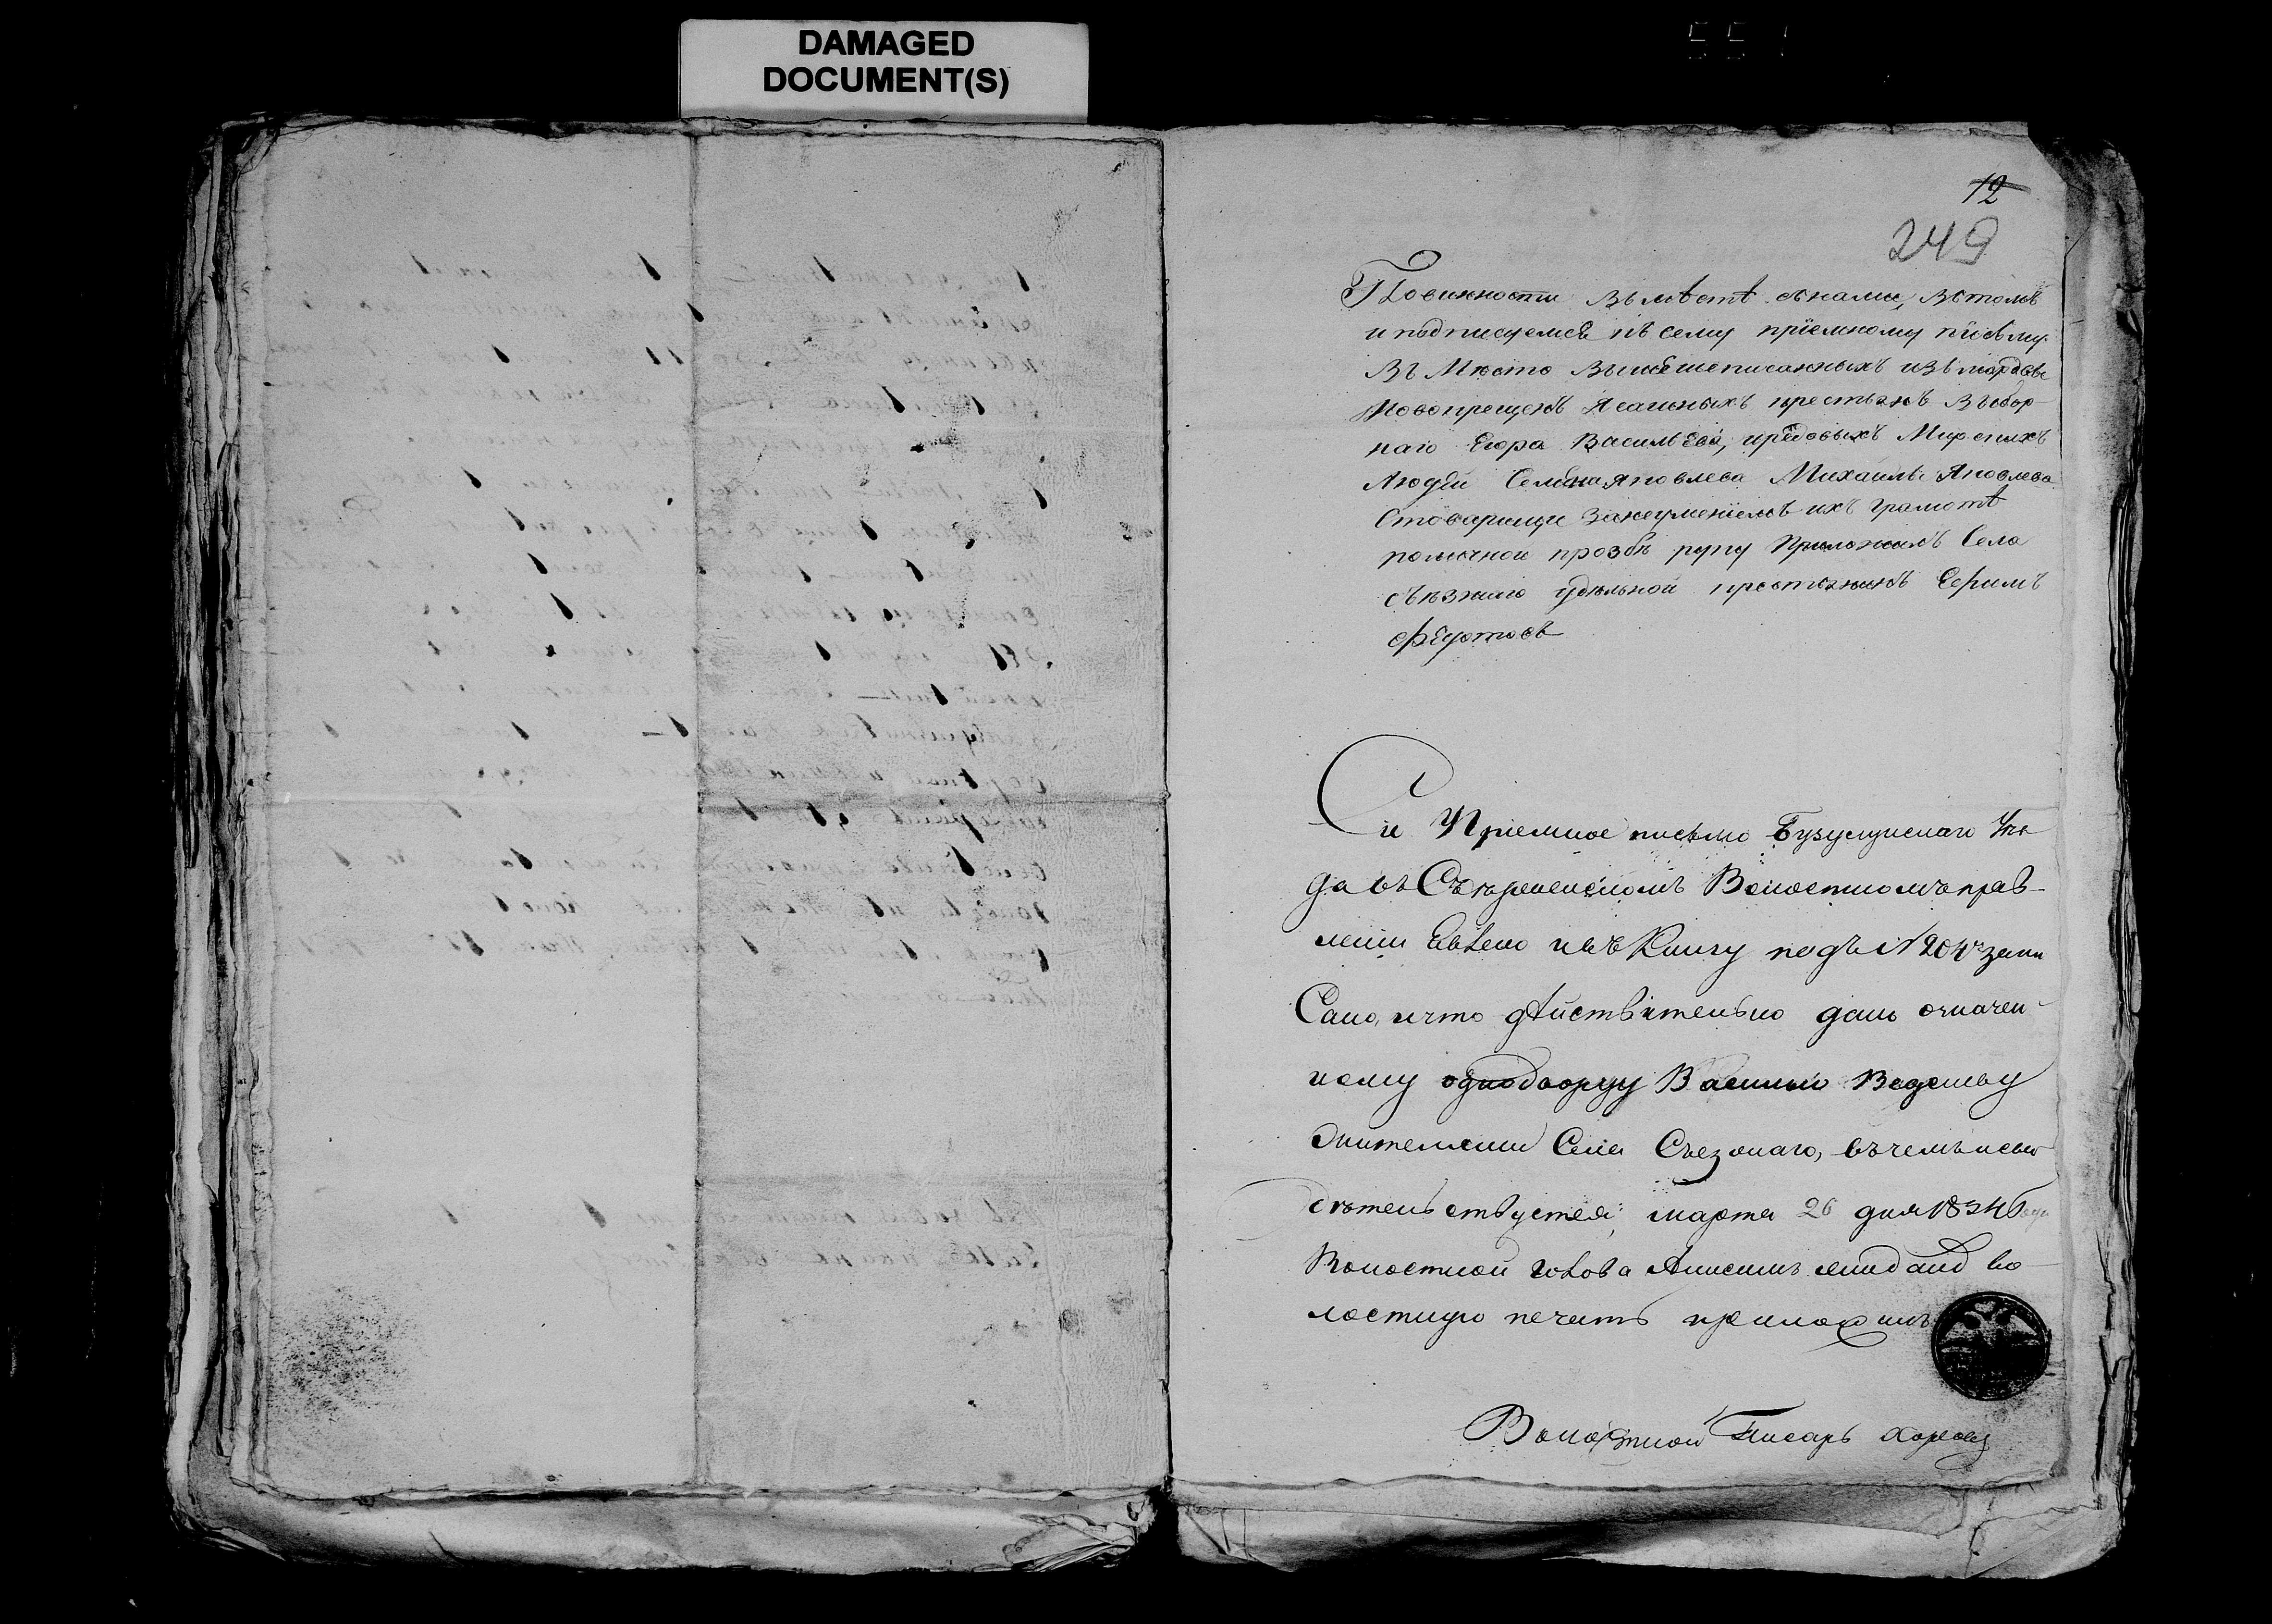 DAMAGED
DOCUMENT(S)
12
249
Повинности вмѣстѣ снами, втомъ
и подписуемся ксему приемному писму.
Въ Место вышеписанныхъ изъ мордвы
Новокрещенъ Ясашныхъ крестьянъ Выбор-
наго Егора Васильева, и редовыхъ Мирскихъ
Людей Семена Яковлева Михаила Яковлева
Стоварищи Занеуменіемъ ихъ Грамотѣ
поличной прозбѣ руку Приложилъ Села
съезжаго удельной крестьянинъ Ефимъ
Сіе Приемное письмо Бузулукскаго Уез
да въ Волостномъ прав-
лении явлено ивъ Книгу подъ № 204м запи
Сано, ичто дѣйствительно дано означен
ному однодворцу Василью
жителями Села Съезжаго, въ чемъ исви
детельствуется, марта 26 дня 1834 Года
Волостной голова Анисимъ во
лостную печать приложилъ
Волостной Писарь